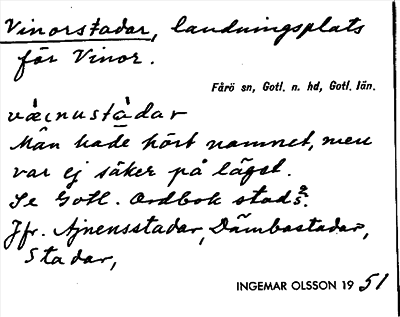 Vinorstadar, landningsplats
för Vinor.
Fårö sn, Gotl. n. hd, Gotl. län.
Män hade hört namnet, men
var ej säker på läget.
Se Gotl. Ordbok stad
Jfr. Ajnensstadar, Dämbastadar,
Stadar,
INGEMAR OLSSON 1951